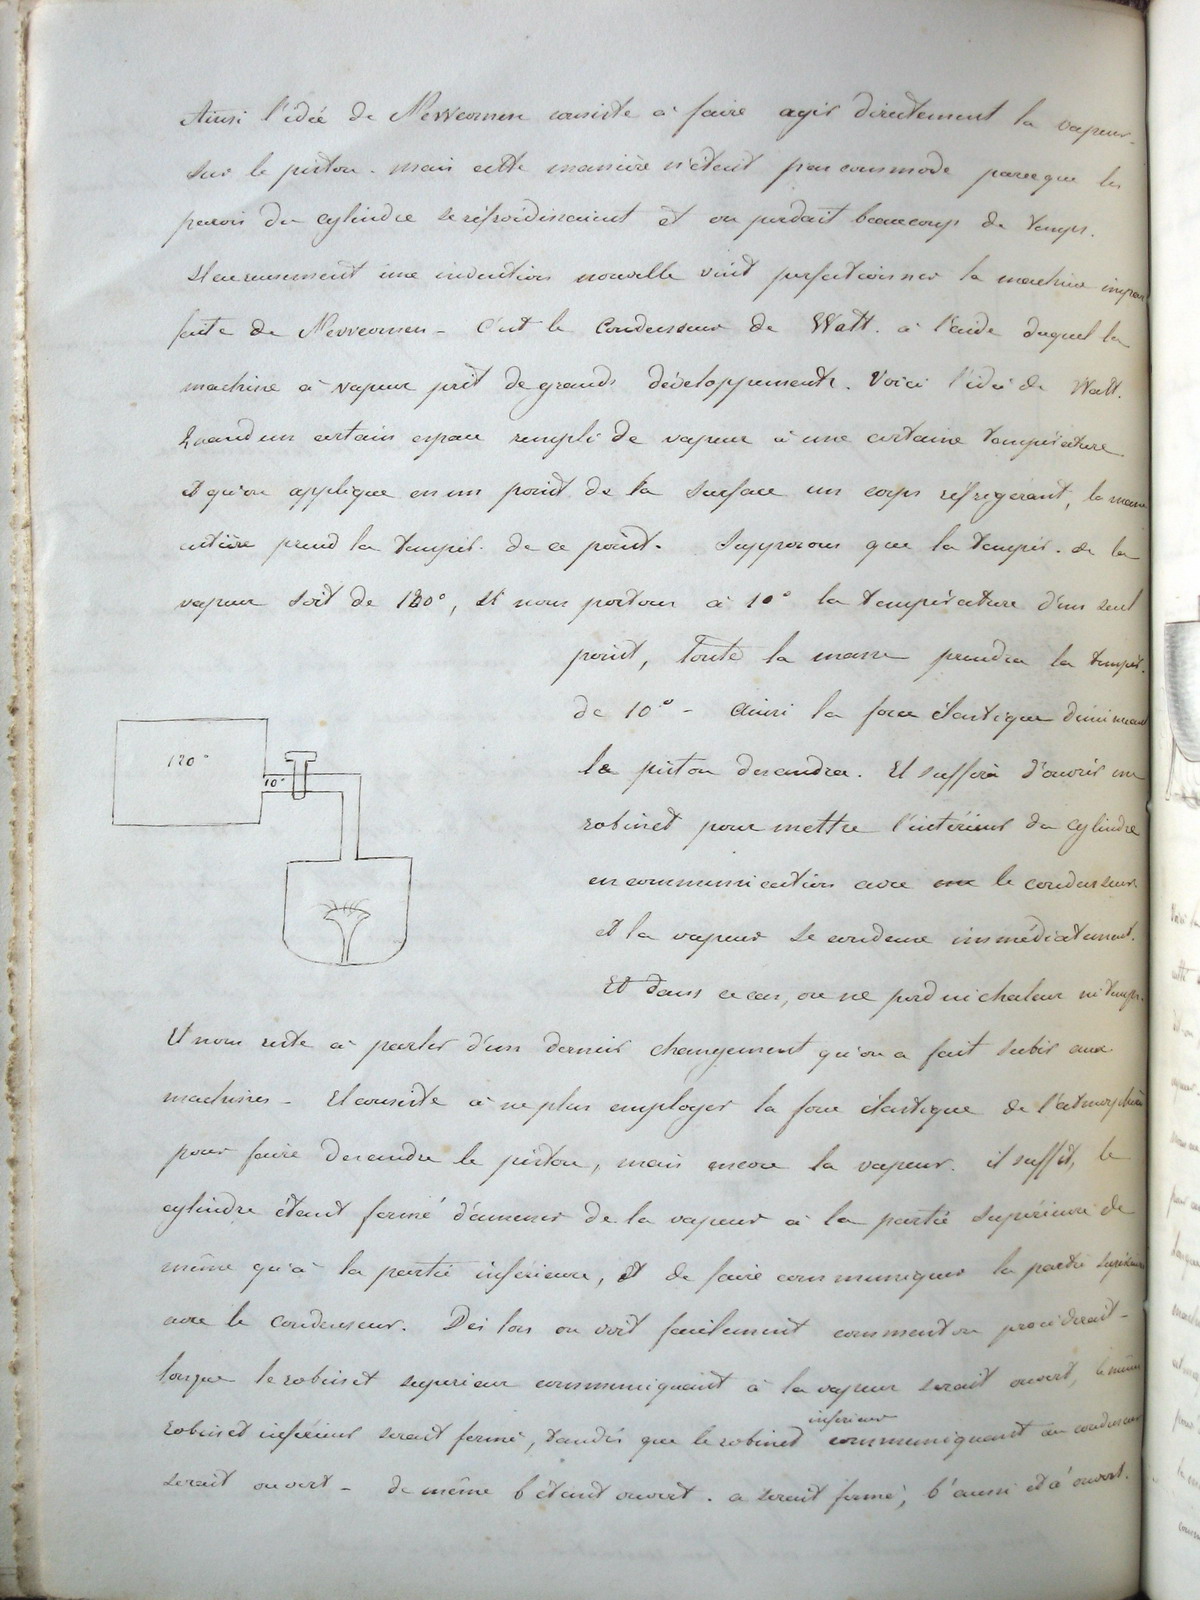 Ainsi l'idée de Newcomen consiste à faire agir directement la vapeur
sur le piston. mais cette manière n'était peu commode parceque les
parois du cylindre se refroidissaient et on perdait beaucoup de temps.
Heureusement une invention nouvelle vint perfectionner la machine impar
faite de Newcomen - C'est le Condenseur de Watt. à l'aide duquel la
machine à vapeur prit de grands développements. Voici l'idée de Watt.
Quand un certain espace rempli de vapeur à une certaine température
et qu'on applique en un point de la surface un corps réfrigérant, la masse
entière prend la tempér. de ce point. Supposons que la tempér. de la
vapeur soit de 120°, si nous portons à 10° la température d'un seul
point, toute la masse prendra la tempér.
de 10° - Ainsi la force élastique diminuant
le piston descendra. Il suffira d'ouvrir un
robinet pour mettre l'intérieur du cylindre
en communication avec le condenseur
et la vapeur se condense immédiatement.
Et dans ce cas, on ne perd ni chaleur ni temps.
120°
10°
Il nous reste à parler d'un dernier changement qu'on a fait subir aux
machines - Il consiste à ne plus employer la force élastique de l'atmosphère
pour faire descendre le piston, mais encore la vapeur. il suffit, le
cylindre étant fermé d'amener de la vapeur à la partie supérieure de
même qu'à la partie inférieure, et de faire communiquer la partie supérieure
avec le Condenseur. Dès lors on voit facilement comment on procéderait -
lorsque le robinet superieur communiquant à la vapeur serait ouvert, le même
robinet inférieur serait fermé, tandis que le robinet inferieur communiquant au condenseur
serait ouvert - de même b étant ouvert. a serait fermé, b' aussi et a' ouvert.